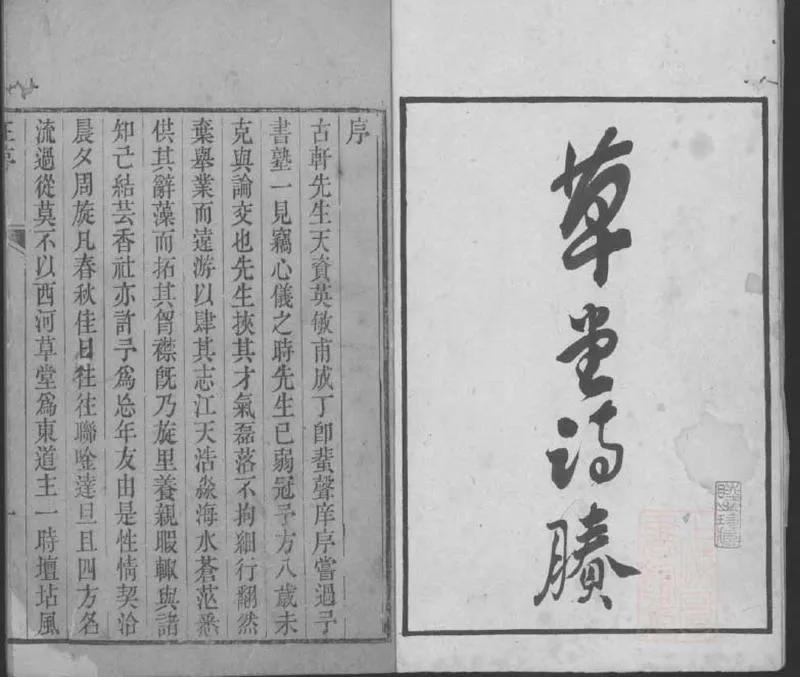 草堂詩賸
序
古軒先生天資英敏甫成丁卽蜚聲庠序嘗過予
書塾一見竊心儀之時先生已弱冠予方八歲未
克與論交也先生挾其才氣磊落不拘細行翻然
棄舉業而遠游以肆其志江天浩淼海水蒼茫悉
供其辭藻而拓其胷襟旣乃旋里養親暇輙與諸
知己結芸香社亦許予爲忘年友由是性情契洽
晨夕周旋凡春秋佳日往往聯唫達旦且四方名
流過從莫不以西河草堂爲東道主一時壇坫風